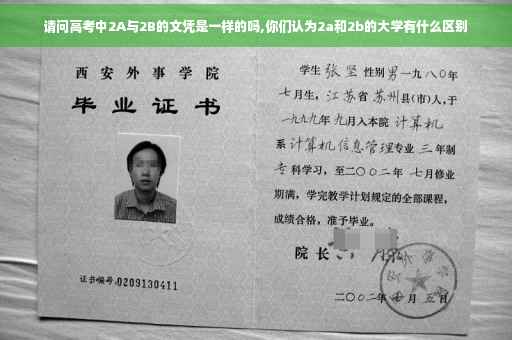 请问高考中2A与2B的文凭是一样的吗,你们认为2a和2b的大学有什么区别
西安外事学院
毕业证书
证书编号:0209130411
学生张坚性别男一九八〇年
七月生,江苏省苏州县(市)人,于
一九九九年九月入本院计算机
系计算机信息管理专业三年制
专科学习,至二〇〇二年七月修业
期满,学完教学计划规定的全部课程,
成绩合格,准予毕业。
院长
二〇〇二年七月五日